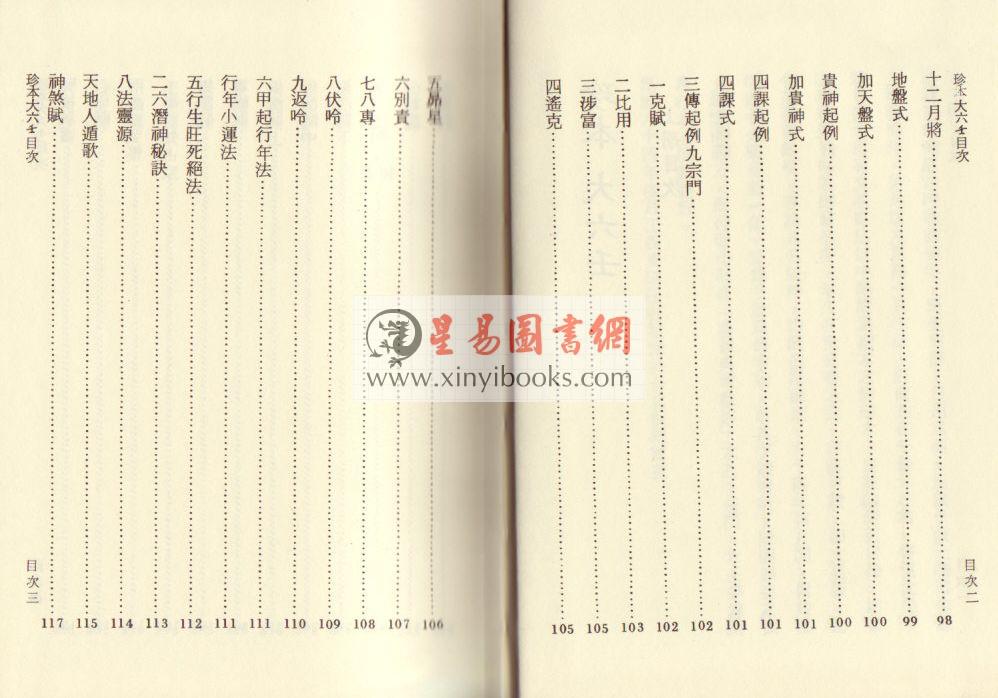 珍本大六壬目次
十二月將 98
地盤式 99
加天盤式 100
貴神起例 100
加貴神式 101
四課起例 101
四課式 101
三傳起例九宗門 102
一克賦 102
二比用 103
三涉富 105
四遙克 105
目次二
五昴星 106
六別責 107
七八專 108
八伏呤 109
九返呤 110
六甲起行年法 111
行年小運法 111
五行生旺死絕法 112
二六潛神秘訣 113
八法靈源 114
天地人遁歌 115
神煞賦 117
珍本大六壬目次
目次三
星易圖書網
www.xinyibooks.com